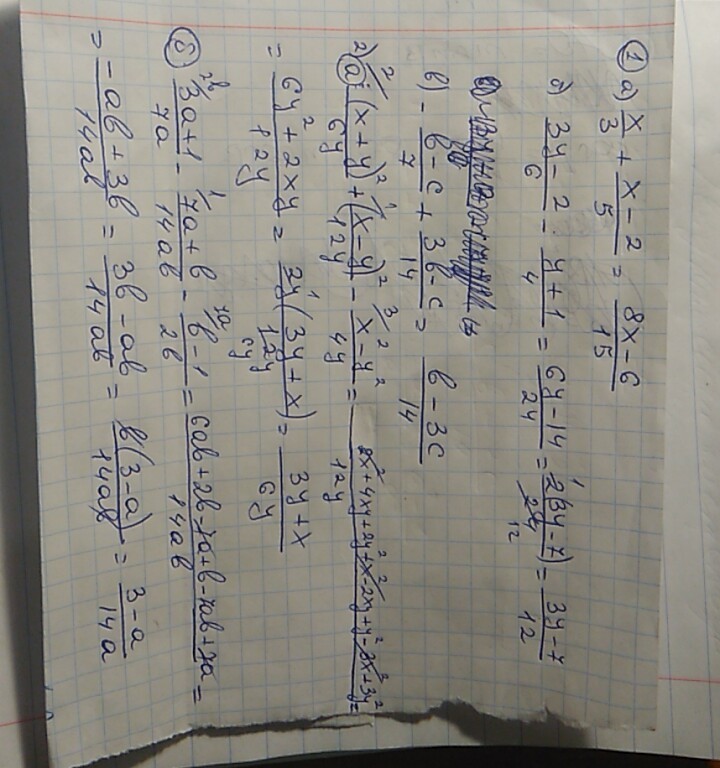 ① а) x/3 + (x-2)/5 = (8x-6)/15
б) (3y-2)/6 - (y+1)/4 = (6y-14)/24 = 2(3y-7)/24 = (3y-7)/12
в) - (b-c)/7 + (3b-c)/14 = (b-3c)/14
2) а) (x+y)²/6y + (x-y)²/12y - (x²-y²)/4y = (2x²+4xy+2y²+x²-2xy+y²-3x²+3y²)/12y =
= (6y²+2xy)/12y = 2y(3y+x)/12y = (3y+x)/6y
б) (3a+1)/7a - (7a+b)/14ab - (b-1)/2b = (6ab+2b-7a+b-7ab+7a)/14ab =
= (-ab+3b)/14ab = (3b-ab)/14ab = b(3-a)/14ab = (3-a)/14a